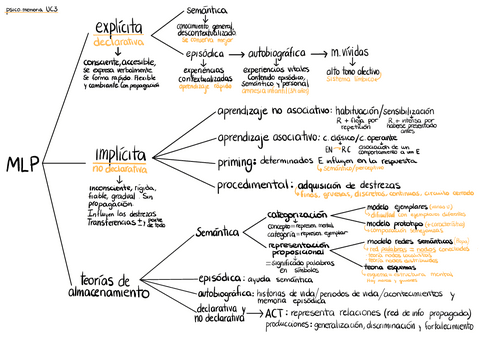 psico memoria UC3
MLP
explícita
declarativa
consciente, accesible,
se expresa verbalmente
Se forma rápido. Flexible
y cambiante con propagación
semántica
conocimiento general,
descontextualizado
se mejora mejor
episódica
experiencias
contextualizadas
aprendizaje rápido
autobiográfica
experiencias vitales
Contenido episódico,
semántico y personal
amnesia infantil
m. vívidas
alto tono afectivo
sistema límbico
implícita
no declarativa
inconsciente, rígida,
fiable, gradual. Sin
propagación
Influyen las destrezas
Transferencias ±; parte
de todo
aprendizaje no asociativo: habituación/sensibilización
R + floja por
repetición
R + intensa por
haberse presentado
antes
aprendizaje asociativo: c. clásico/c. operante
EN → RC
asociación de un
comportamiento a un E
priming: determinados E influyen en la respuesta
semántico/perceptivo
procedimental: adquisición de destrezas
finas, gruesas, discretas, continuas, circuito cerrado
teorías de
almacenamiento
Semántica
categorización
concepto = represen. mental
categoría = represen. ejemplar
modelo ejemplares
dificultad con ejemplares
modelo prototipo
comparación semejanzas
representación
proposicional
= significado palabras
en símbolos
modelo redes semánticas
red palabras = nodos conectados
teoría nodos
teoría nodos
teoría esquemas
esquema = estructura
episódica: ayuda semántica
autobiográfica: historias de vida/periodos de vida/acontecimientos y
memoria episódica
declarativa y
no declarativa
ACT: representa relaciones (red de info propagada)
producciones: generalización, discriminación y fortalecimiento